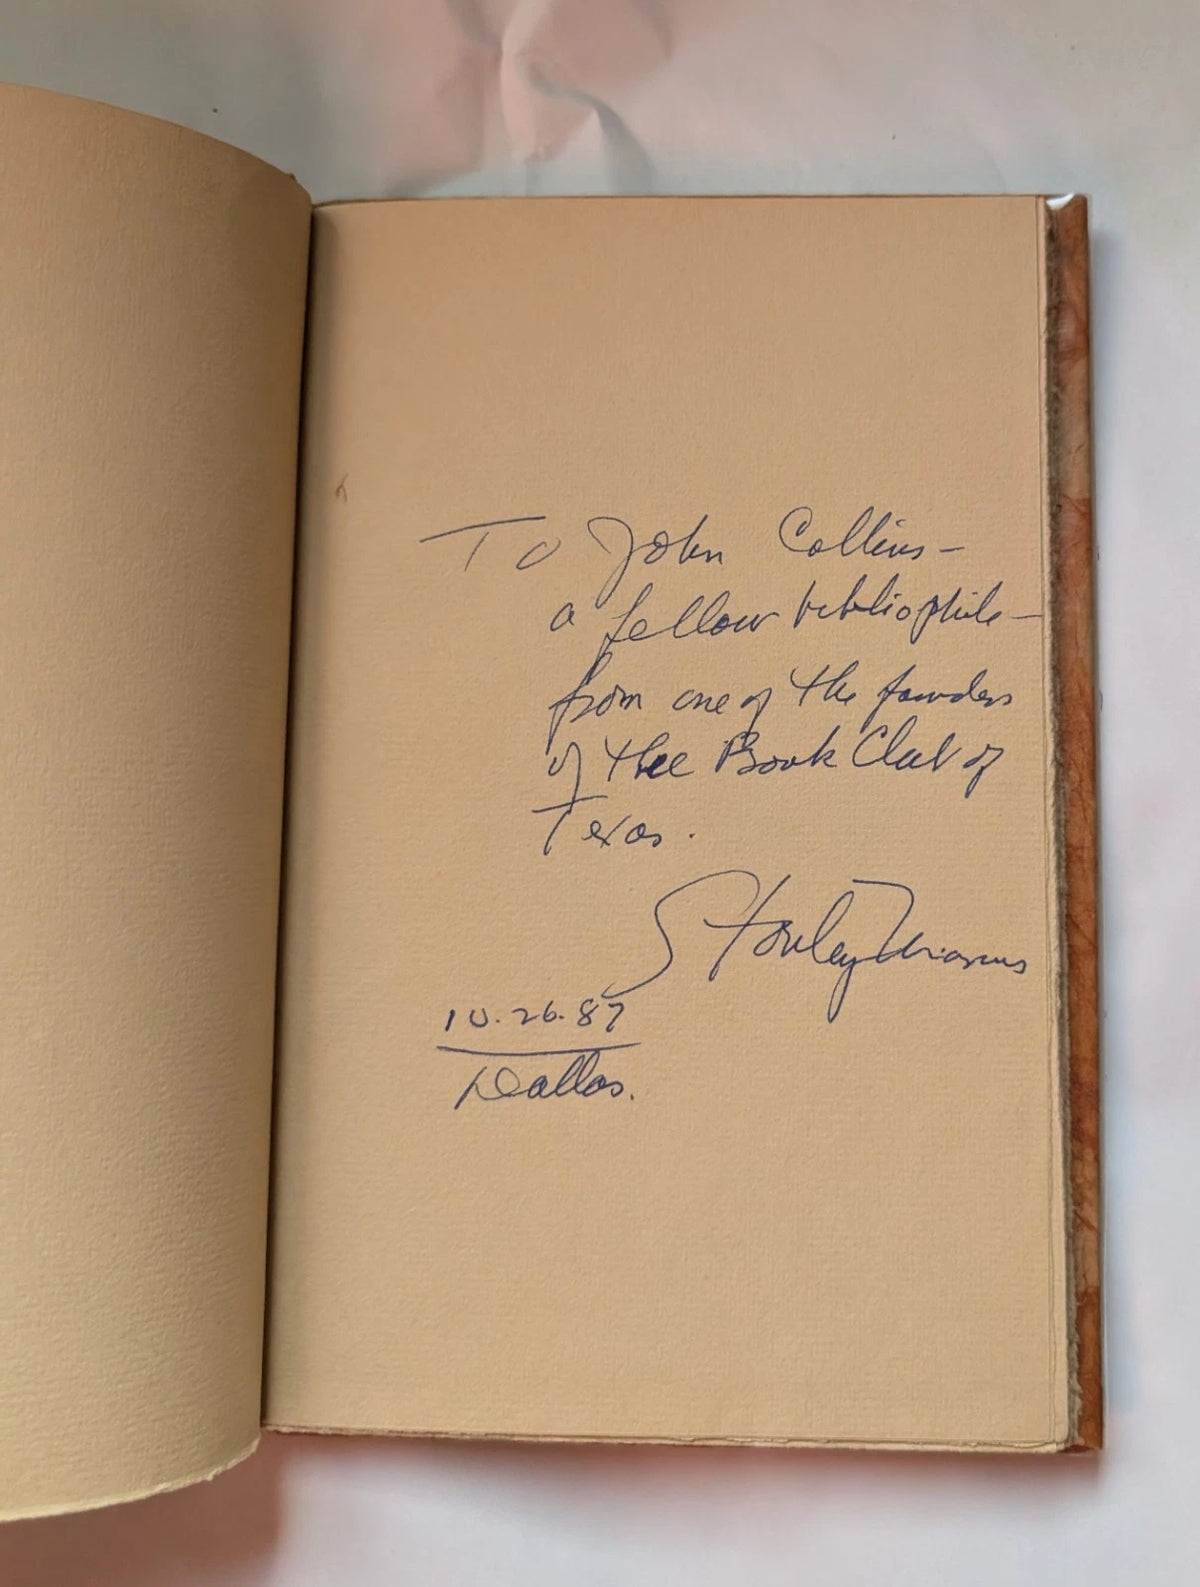 To John Collins—
a fellow bibliophile—
from one of the founders
of the Book Club of
Texas.
Stanley Marcus
10.26.87
Dallas.